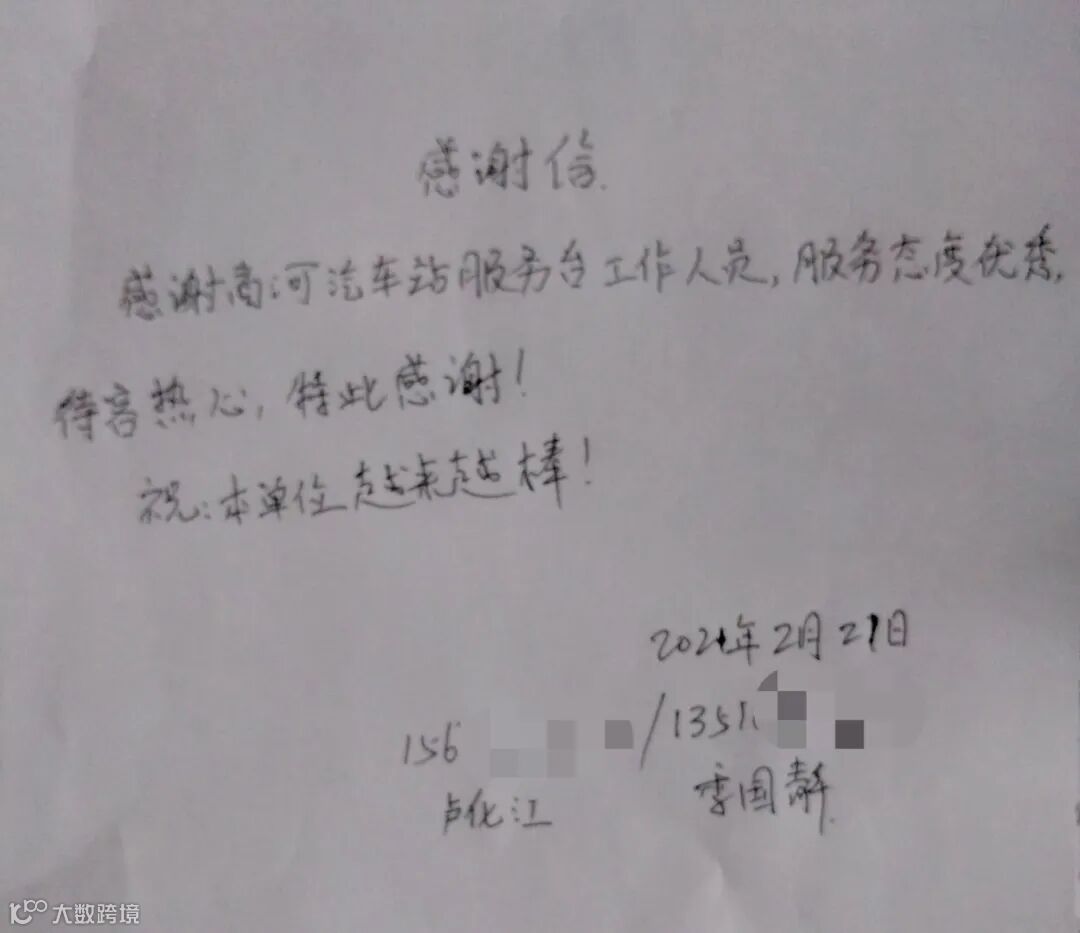 感谢信.
感谢商河汽车站服务台工作人员,服务态度优秀,
待客热心,特此感谢!
祝:本单位越来越棒!
2021年2月21日
156 /1351
卢化江 李国静
大数跨境